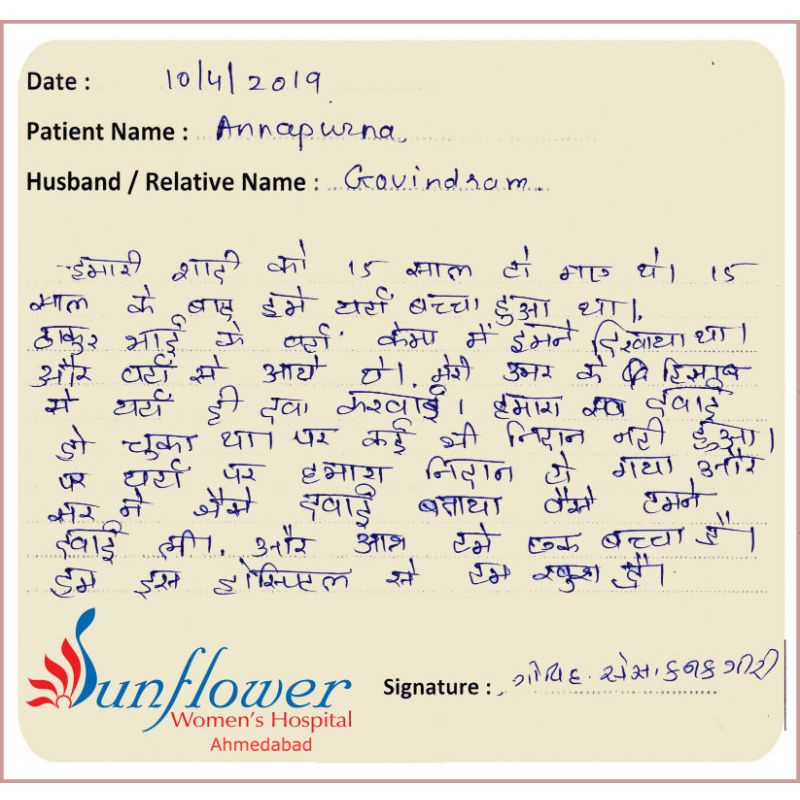 Date : 10/4/2019
Patient Name : Annapurna
Husband / Relative Name : Govindram
हमारी शादी को 15 साल हो गए थे। 15
साल के बाद हमे यहाँ बच्चा हुआ था।
ठाकुर भाई के वहाँ केम्प में हमने दिखाया था।
और वहाँ से आये थे। मेरी उमर के हिसाब
से यहाँ ही दवा करवाई। हमारा सब दवाई
हो चुका था। पर कई भी निदान नही हुआ।
पर यहाँ पर हमारा निदान हो गया और
सर ने जैसे दवाई बताया वैसे हमने
दवाई ली। और आज हमे एक बच्चा है।
हम इस होस्पिटल से हम खुश है।
Sunflower
Women's Hospital
Ahmedabad
Signature : ગોવિંદ. એસ.